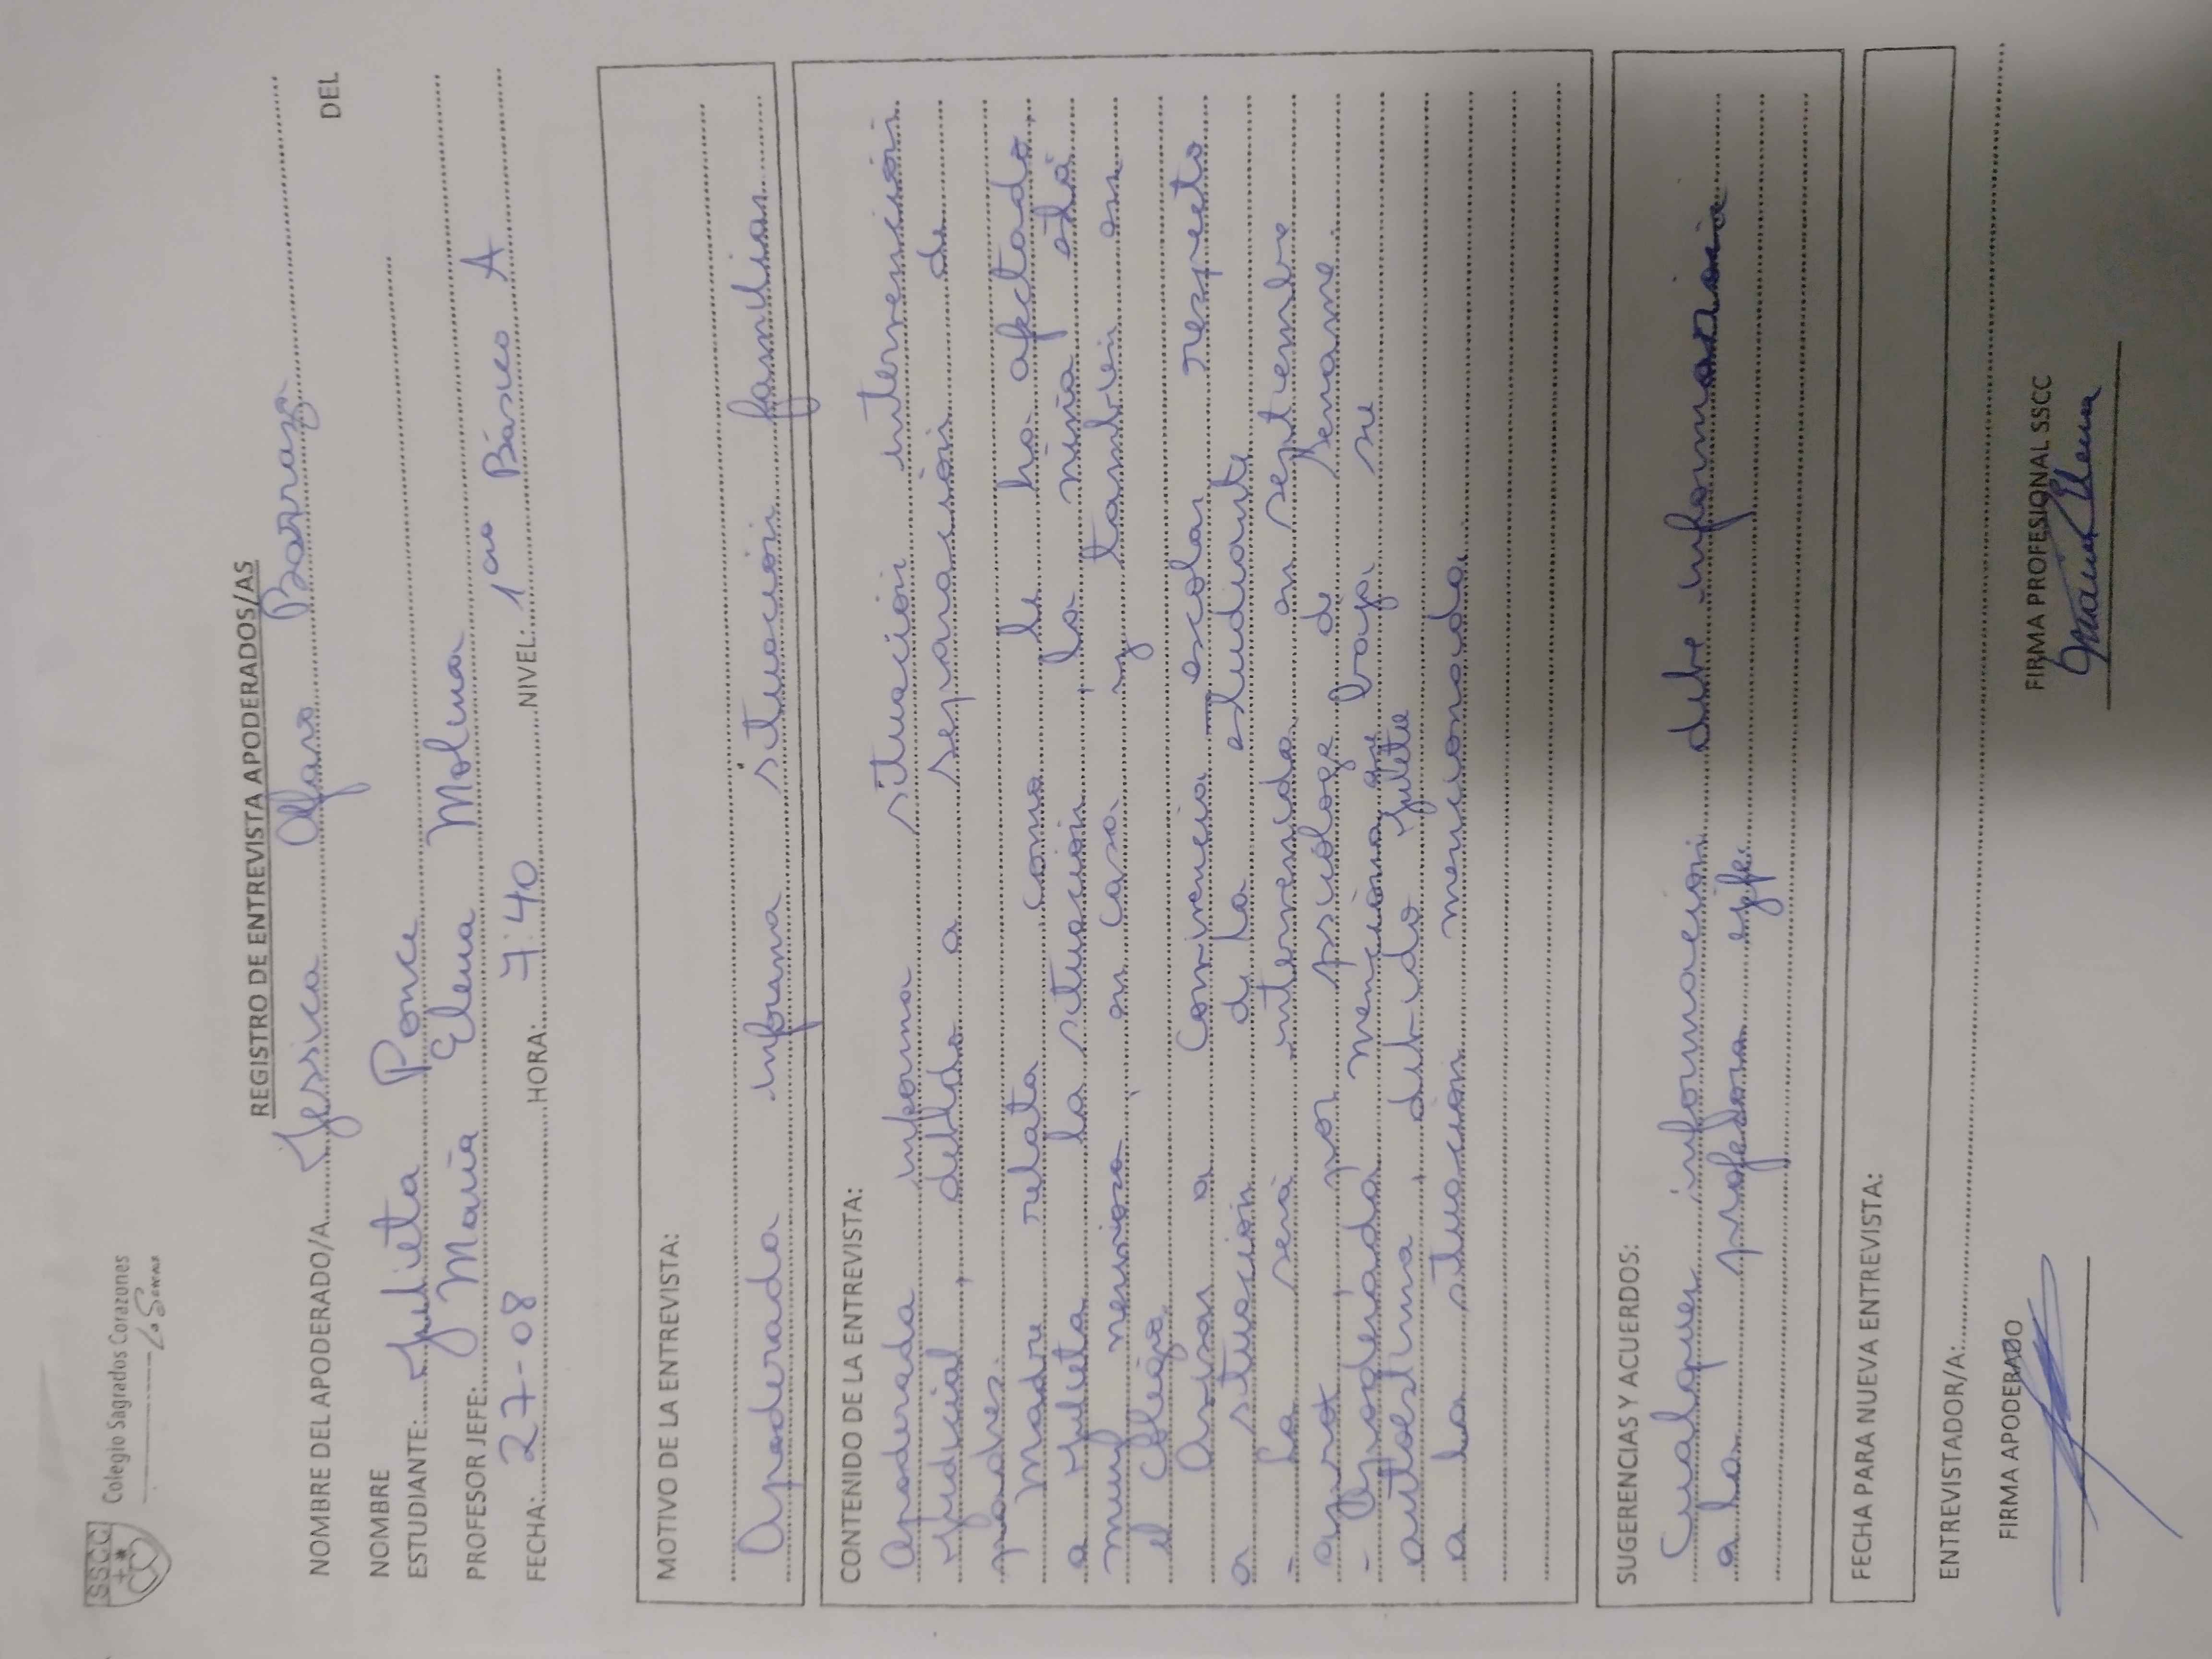 SSCC
Colegio Sagrados Corazones
La Serena
REGISTRO DE ENTREVISTA APODERADOS/AS
NOMBRE DEL APODERADO/A Jessica Alfaro Barraza
NOMBRE DEL
ESTUDIANTE: Julieta Ponce
PROFESOR JEFE: Maria Elena Molina
FECHA: 27-08 HORA: 7:40 NIVEL: 1ero Básico A
MOTIVO DE LA ENTREVISTA:
Apoderada informa situación familiar
CONTENIDO DE LA ENTREVISTA:
Apoderada informa situación intervención
judicial, debido a separación de
padres.
Madre relata como le ha afectado
a Julieta la situación, la niña está
muy nerviosa, en casa y también en
el Colegio.
Avisar a Convivencia escolar respecto
a situación de la estudiante
- La será intervenida en septiembre
por psicologa de Sename.
- Apoderada menciona que baja su
autoestima, debido Julieta
a la situación mencionada.
SUGERENCIAS Y ACUERDOS:
Cualquier información debe informarse
a la profesora jefe.
FECHA PARA NUEVA ENTREVISTA:
ENTREVISTADOR/A:
FIRMA APODERADO
FIRMA PROFESIONAL SSCC
Maria Elena